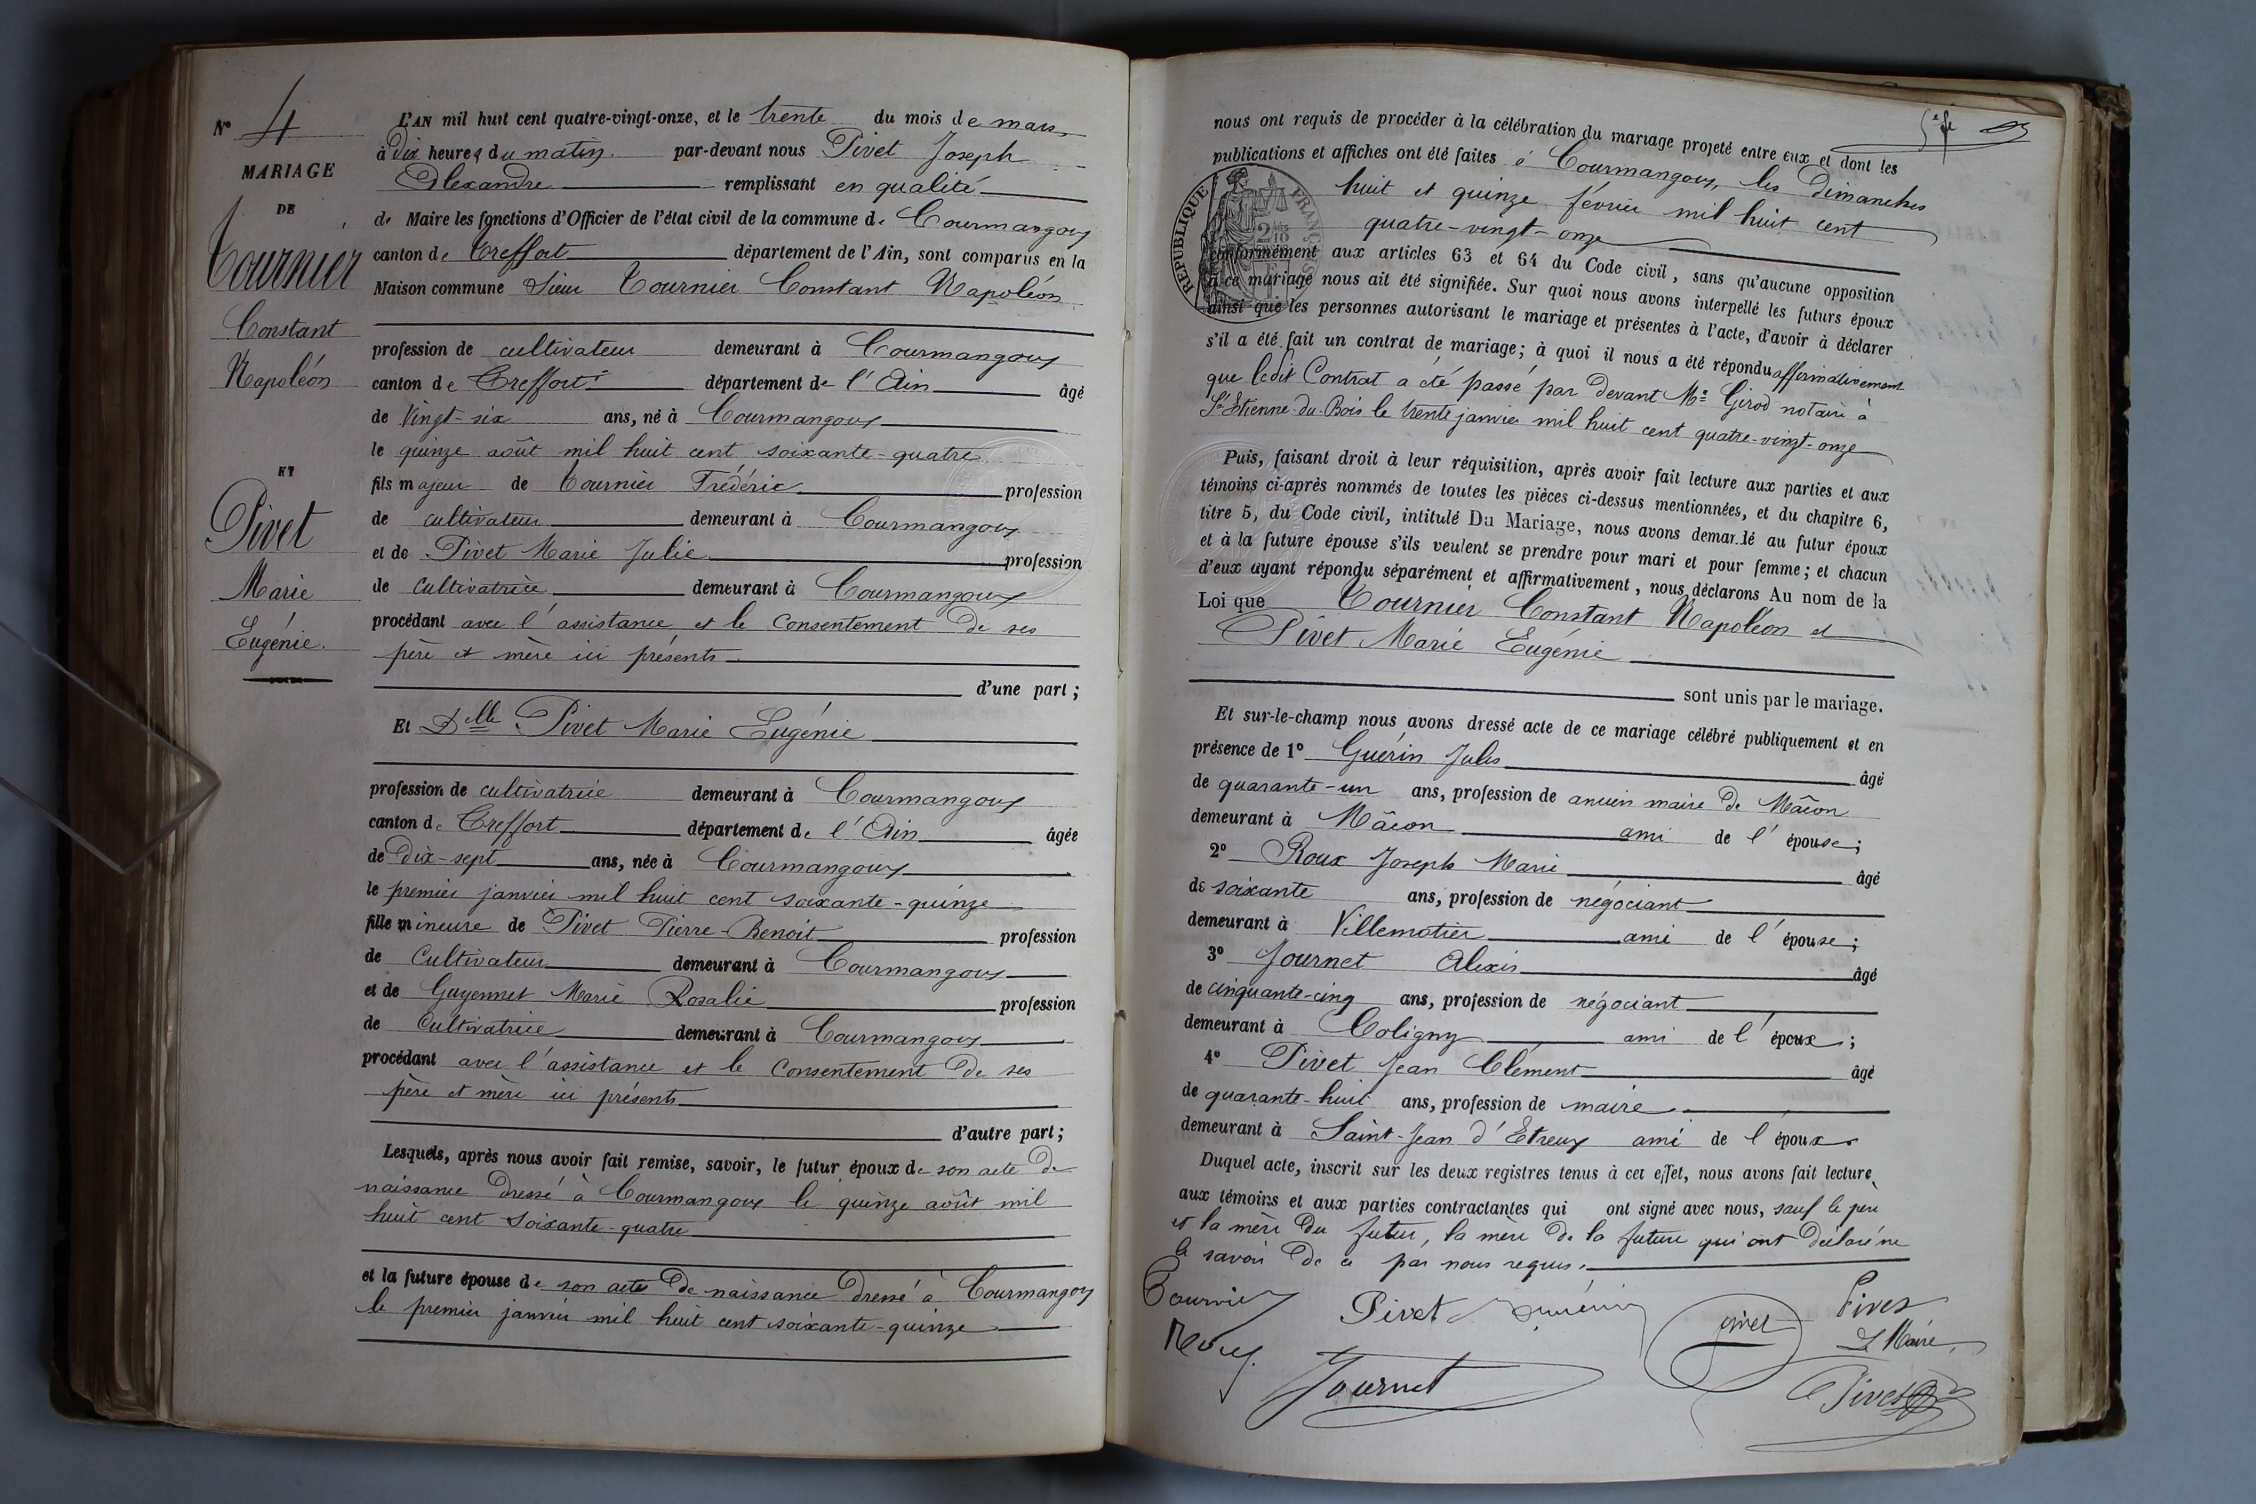 N° 4
MARIAGE
DE
Tournier
Constant
Napoléon
ET
Pivet
Marie
Eugénie.
L'AN mil huit cent quatre-vingt-onze, et le trente du mois de mars,
à dix heures du matin par-devant nous Pivet Joseph
Alexandre remplissant en qualité
de Maire les fonctions d'Officier de l'état civil de la commune de Courmangoux
canton de Treffort département de l'Ain, sont comparus en la
Maison commune Sieur Tournier Constant Napoléon
profession de cultivateur demeurant à Courmangoux
canton de Treffort département de l'Ain âgé
de Vingt-six ans, né à Courmangoux
le quinze août mil huit cent soixante-quatre
fils majeur de Tournier Frédéric profession
de cultivateur demeurant à Courmangoux
et de Pivet Marie Julie profession
de cultivatrice demeurant à Courmangoux
procédant avec l'assistance et le consentement de ses
père et mère ici présents
d'une part ;
Et Delle Pivet Marie Eugénie
profession de cultivatrice demeurant à Courmangoux
canton de Treffort département de l'Ain âgée
de Dix-sept ans, née à Courmangoux
le premier janvier mil huit cent soixante-quinze
fille mineure de Pivet Pierre-Benoit profession
de Cultivateur demeurant à Courmangoux
et de Guyennet Marie Rosalie profession
de Cultivatrice demeurant à Courmangoux
procédant avec l'assistance et le consentement de ses
père et mère ici présents
d'autre part ;
Lesquels, après nous avoir fait remise, savoir, le futur époux de son acte de
naissance dressé à Courmangoux le quinze août mil
huit cent soixante-quatre
et la future épouse de son acte de naissance dressé à Courmangoux
le premier janvier mil huit cent soixante-quinze
nous ont requis de procéder à la célébration du mariage projeté entre eux et dont les
publications et affiches ont été faites à Courmangoux, les Dimanches
huit et quinze février mil huit cent
quatre-vingt-onze
conformément aux articles 63 et 64 du Code civil, sans qu'aucune opposition
à ce mariage nous ait été signifiée. Sur quoi nous avons interpellé les futurs époux
ainsi que les personnes autorisant le mariage et présentes à l'acte, d'avoir à déclarer
s'il a été fait un contrat de mariage ; à quoi il nous a été répondu affirmativement
que ledit Contrat a été passé par devant Me Girod notaire à
St Etienne-du-Bois le trente janvier mil huit cent quatre-vingt-onze
RÉPUBLIQUE FRANÇAISE
Puis, faisant droit à leur réquisition, après avoir fait lecture aux parties et aux
témoins ci-après nommés de toutes les pièces ci-dessus mentionnées, et du chapitre 6,
titre 5, du Code civil, intitulé Du Mariage, nous avons demandé au futur époux
et à la future épouse s'ils veulent se prendre pour mari et pour femme ; et chacun
d'eux ayant répondu séparément et affirmativement, nous déclarons Au nom de la
Loi que Tournier Constant Napoléon et
Pivet Marie Eugénie
sont unis par le mariage.
Et sur-le-champ nous avons dressé acte de ce mariage célébré publiquement et en
présence de 1° Guérin Jules âgé
de quarante-un ans, profession de ancien maire de Mâcon
demeurant à Mâcon ami de l'épouse ;
2° Roux Joseph Marie âgé
de soixante ans, profession de négociant
demeurant à Villemotier ami de l'épouse ;
3° Journet Alexis âgé
de cinquante-cinq ans, profession de négociant
demeurant à Coligny ami de l'époux ;
4° Pivet Jean Clément âgé
de quarante-huit ans, profession de maire
demeurant à Saint-Jean d'Etreux ami de l'époux.
Duquel acte, inscrit sur les deux registres tenus à cet effet, nous avons fait lecture
aux témoins et aux parties contractantes qui ont signé avec nous, sauf le père
et la mère du futur, la mère de la future qui ont déclaré ne
le savoir de ce par nous requis.
Tournier Pivet Guérin pivet Pivet
Le Maire,
Roux Journet Pivet